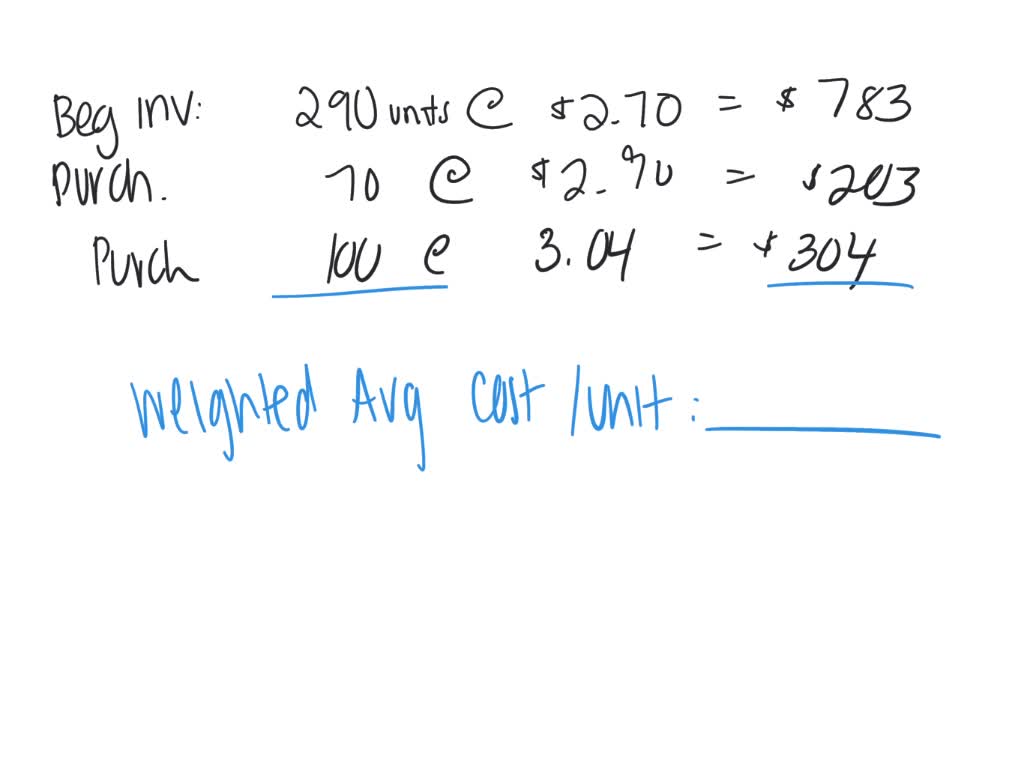 Beg inv: 290 units @ $2.70 = $783
Purch. 70 @ $2.90 = $203
Purch 100 @ 3.04 = $304
Weighted Avg Cost /unit: